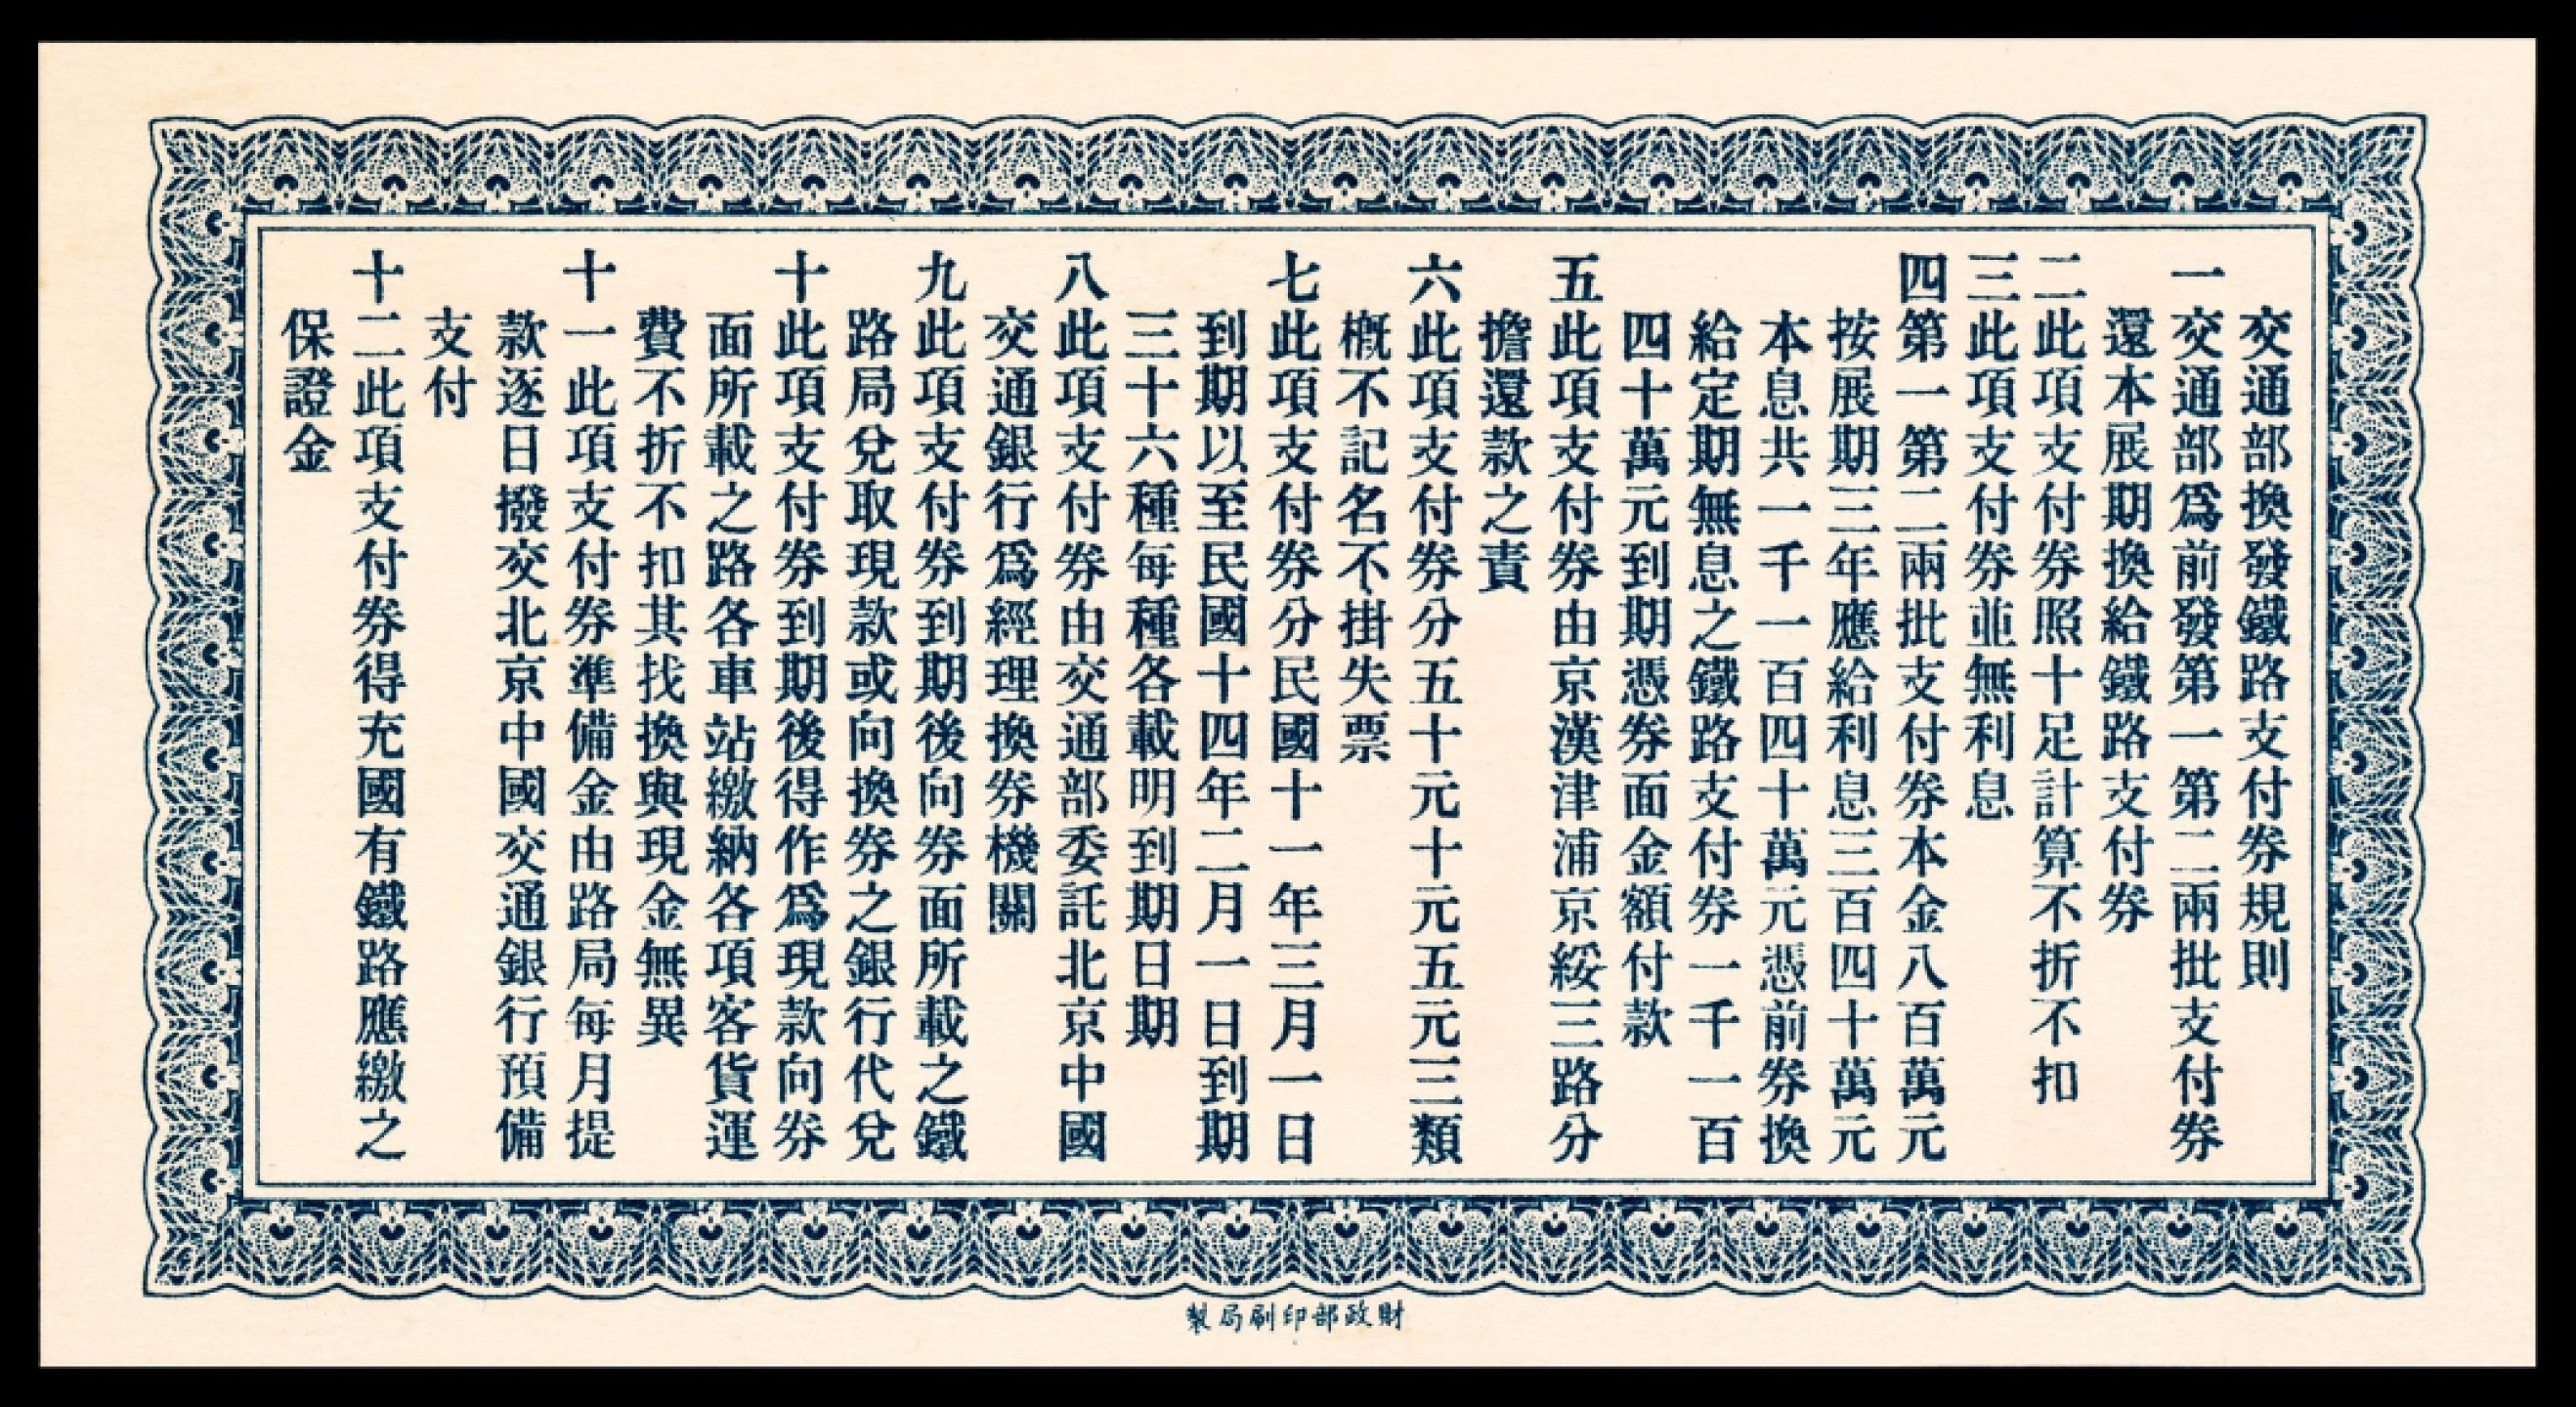 交通部換發鐵路支付券規則
一交通部爲前發第一第二兩批支付券
還本展期換給鐵路支付券
二此項支付券照十足計算不折不扣
三此項支付券並無利息
四第一第二兩批支付券本金八百萬元
按展期三年應給利息三百四十萬元
本息共一千一百四十萬元憑前券換
給定期無息之鐵路支付券一千一百
四十萬元到期憑券面金額付款
五此項支付券由京漢津浦京綏三路分
擔還款之責
六此項支付券分五十元十元五元三類
槪不記名不掛失票
七此項支付券分民國十一年三月一日
到期以至民國十四年二月一日到期
三十六種每種各載明到期日期
八此項支付券由交通部委託北京中國
交通銀行爲經理換券機關
九此項支付券到期後向券面所載之鐵
路局兌取現款或向換券之銀行代兌
十此項支付券到期後得作爲現款向券
面所載之路各車站繳納各項客貨運
費不折不扣其找換與現金無異
十一此項支付券準備金由路局每月提
款逐日撥交北京中國交通銀行預備
支付
十二此項支付券得充國有鐵路應繳之
保證金
財政部印刷局製